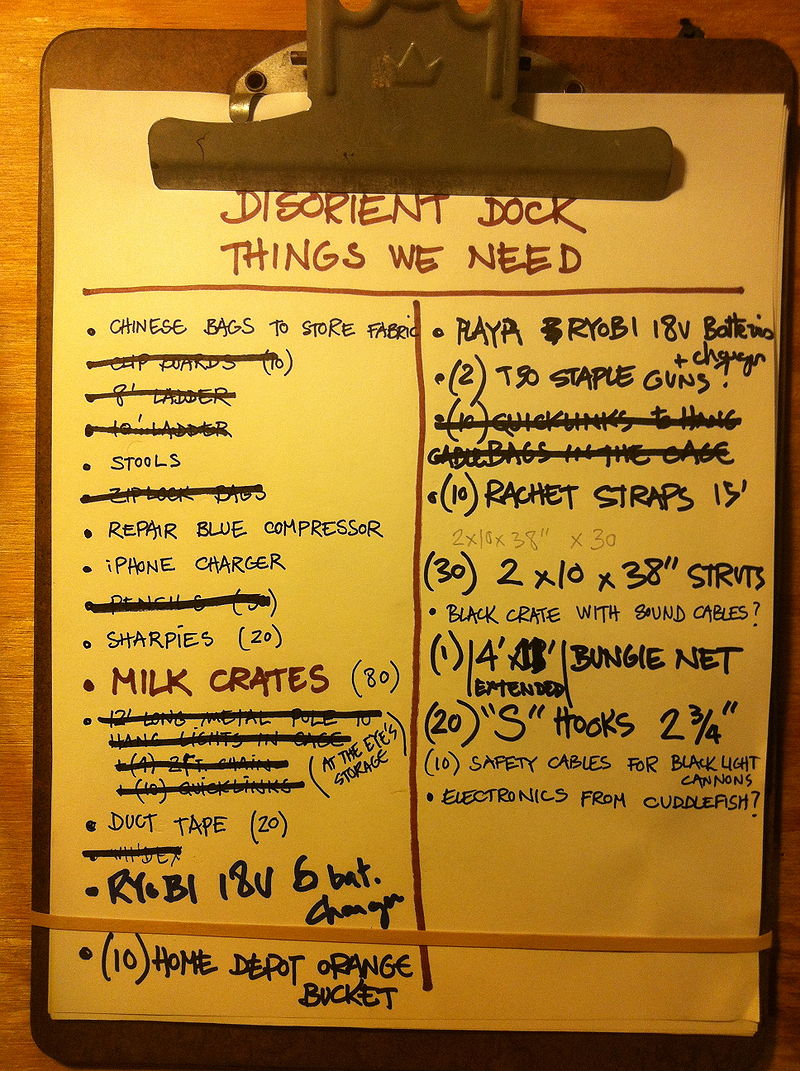 DISORIENT DOCK
THINGS WE NEED
• CHINESE BAGS TO STORE FABRIC
• CLIP BOARDS (10)
• 8' LADDER
• 10' LADDER
• STOOLS
• ZIPLOCK BAGS
• REPAIR BLUE COMPRESSOR
• iPHONE CHARGER
• PENCILS
• SHARPIES (20)
• MILK CRATES (80)
• 12' LONG METAL POLE TO
HANG LIGHTS IN CAGE
(4) 2FT. CHAIN
(10) QUICKLINKS
(AT THE EYE'S
STORAGE)
• DUCT TAPE (20)
• WINDEX
• RYOBI 18V 6 bat.
charger
• (10) HOME DEPOT ORANGE
BUCKET
• PLAYA RYOBI 18V Batteries
+ charger
• (2) T50 STAPLE GUNS.
• (10) QUICKLINKS to HANG
CABLE BAGS IN THE CAGE
• (10) RACHET STRAPS 15'
2x10x38" x 30
(30) 2x10 x 38" STRUTS
• BLACK CRATE WITH SOUND CABLES?
(1) 4' BUNGIE NET
EXTENDED
(20) "S" HOOKS 2 3/4"
(10) SAFETY CABLES FOR BLACK LIGHT
CANNONS
• ELECTRONICS FROM CUDDLEFISH?